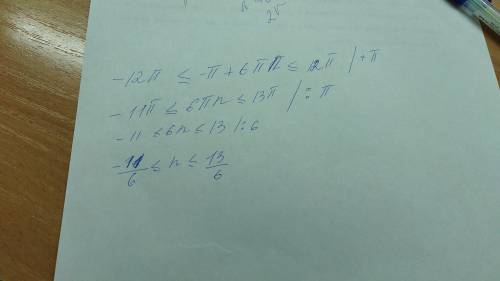 -12π ≤ -π + 6πn ≤ 12π | + π
-11π ≤ 6πn ≤ 13π | : π
-11 ≤ 6n ≤ 13 | : 6
-11/6 ≤ n ≤ 13/6